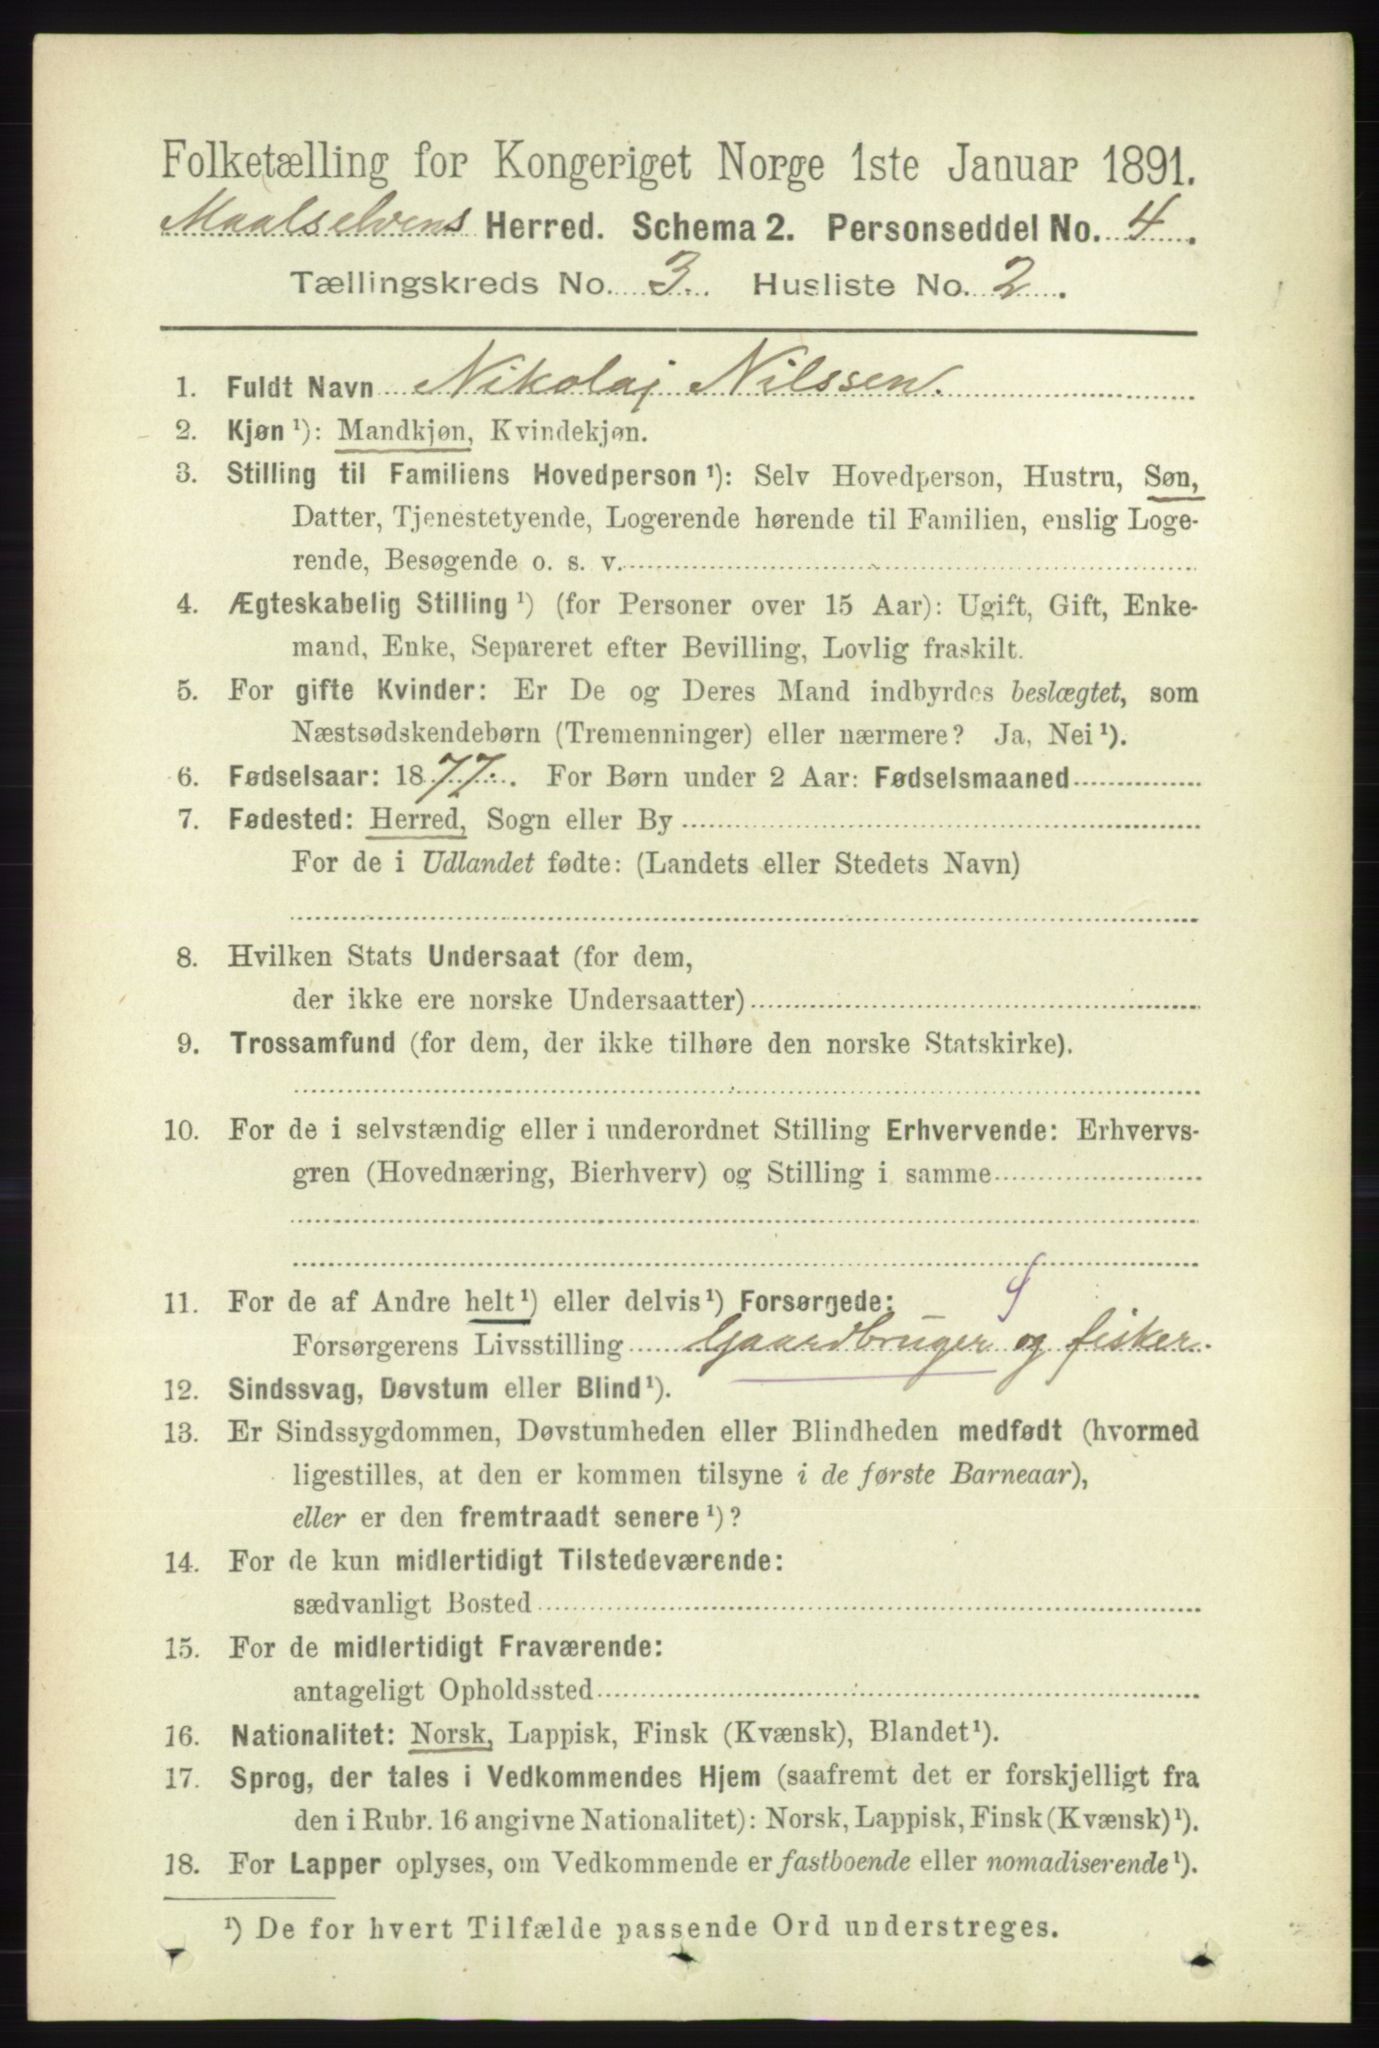 Folketælling for Kongeriget Norge 1ste Januar 1891.
Maalselvens Herred. Schema 2. Personseddel No. 4.
Tællingskreds No. 3. Husliste No. 2.
1. Fuldt Navn Nikolaj Nilssen.
2. Kjøn ¹): Mandkjøn, Kvindekjøn.
3. Stilling til Familiens Hovedperson ¹): Selv Hovedperson, Hustru, Søn,
Datter, Tjenestetyende, Logerende hørende til Familien, enslig Loge-
rende, Besøgende o. s. v.
4. Ægteskabelig Stilling ¹) (for Personer over 15 Aar): Ugift, Gift, Enke-
mand, Enke, Separeret efter Bevilling, Lovlig fraskilt.
5. For gifte Kvinder: Er De og Deres Mand indbyrdes beslægtet, som
Næstsødskendebørn (Tremenninger) eller nærmere? Ja, Nei ¹).
6. Fødselsaar: 1877. For Børn under 2 Aar: Fødselsmaaned
7. Fødested: Herred, Sogn eller By
For de i Udlandet fødte: (Landets eller Stedets Navn)
8. Hvilken Stats Undersaat (for dem,
der ikke ere norske Undersaatter)
9. Trossamfund (for dem, der ikke tilhøre den norske Statskirke).
10. For de i selvstændig eller i underordnet Stilling Erhvervende: Erhvervs-
gren (Hovednæring, Bierhverv) og Stilling i samme
11. For de af Andre helt ¹) eller delvis ¹) Forsørgede:
Forsørgerens Livsstilling Gaardbruger og fisker.
12. Sindssvag, Døvstum eller Blind ¹).
13. Er Sindssygdommen, Døvstumheden eller Blindheden medfødt (hvormed
ligestilles, at den er kommen tilsyne i de første Barneaar),
eller er den fremtraadt senere ¹)?
14. For de kun midlertidigt Tilstedeværende:
sædvanligt Bosted
15. For de midlertidigt Fraværende:
antageligt Opholdssted
16. Nationalitet: Norsk, Lappisk, Finsk (Kvænsk), Blandet ¹).
17. Sprog, der tales i Vedkommendes Hjem (saafremt det er forskjelligt fra
den i Rubr. 16 angivne Nationalitet): Norsk, Lappisk, Finsk (Kvænsk) ¹).
18. For Lapper oplyses, om Vedkommende er fastboende eller nomadiserende ¹).
¹) De for hvert Tilfælde passende Ord understreges.